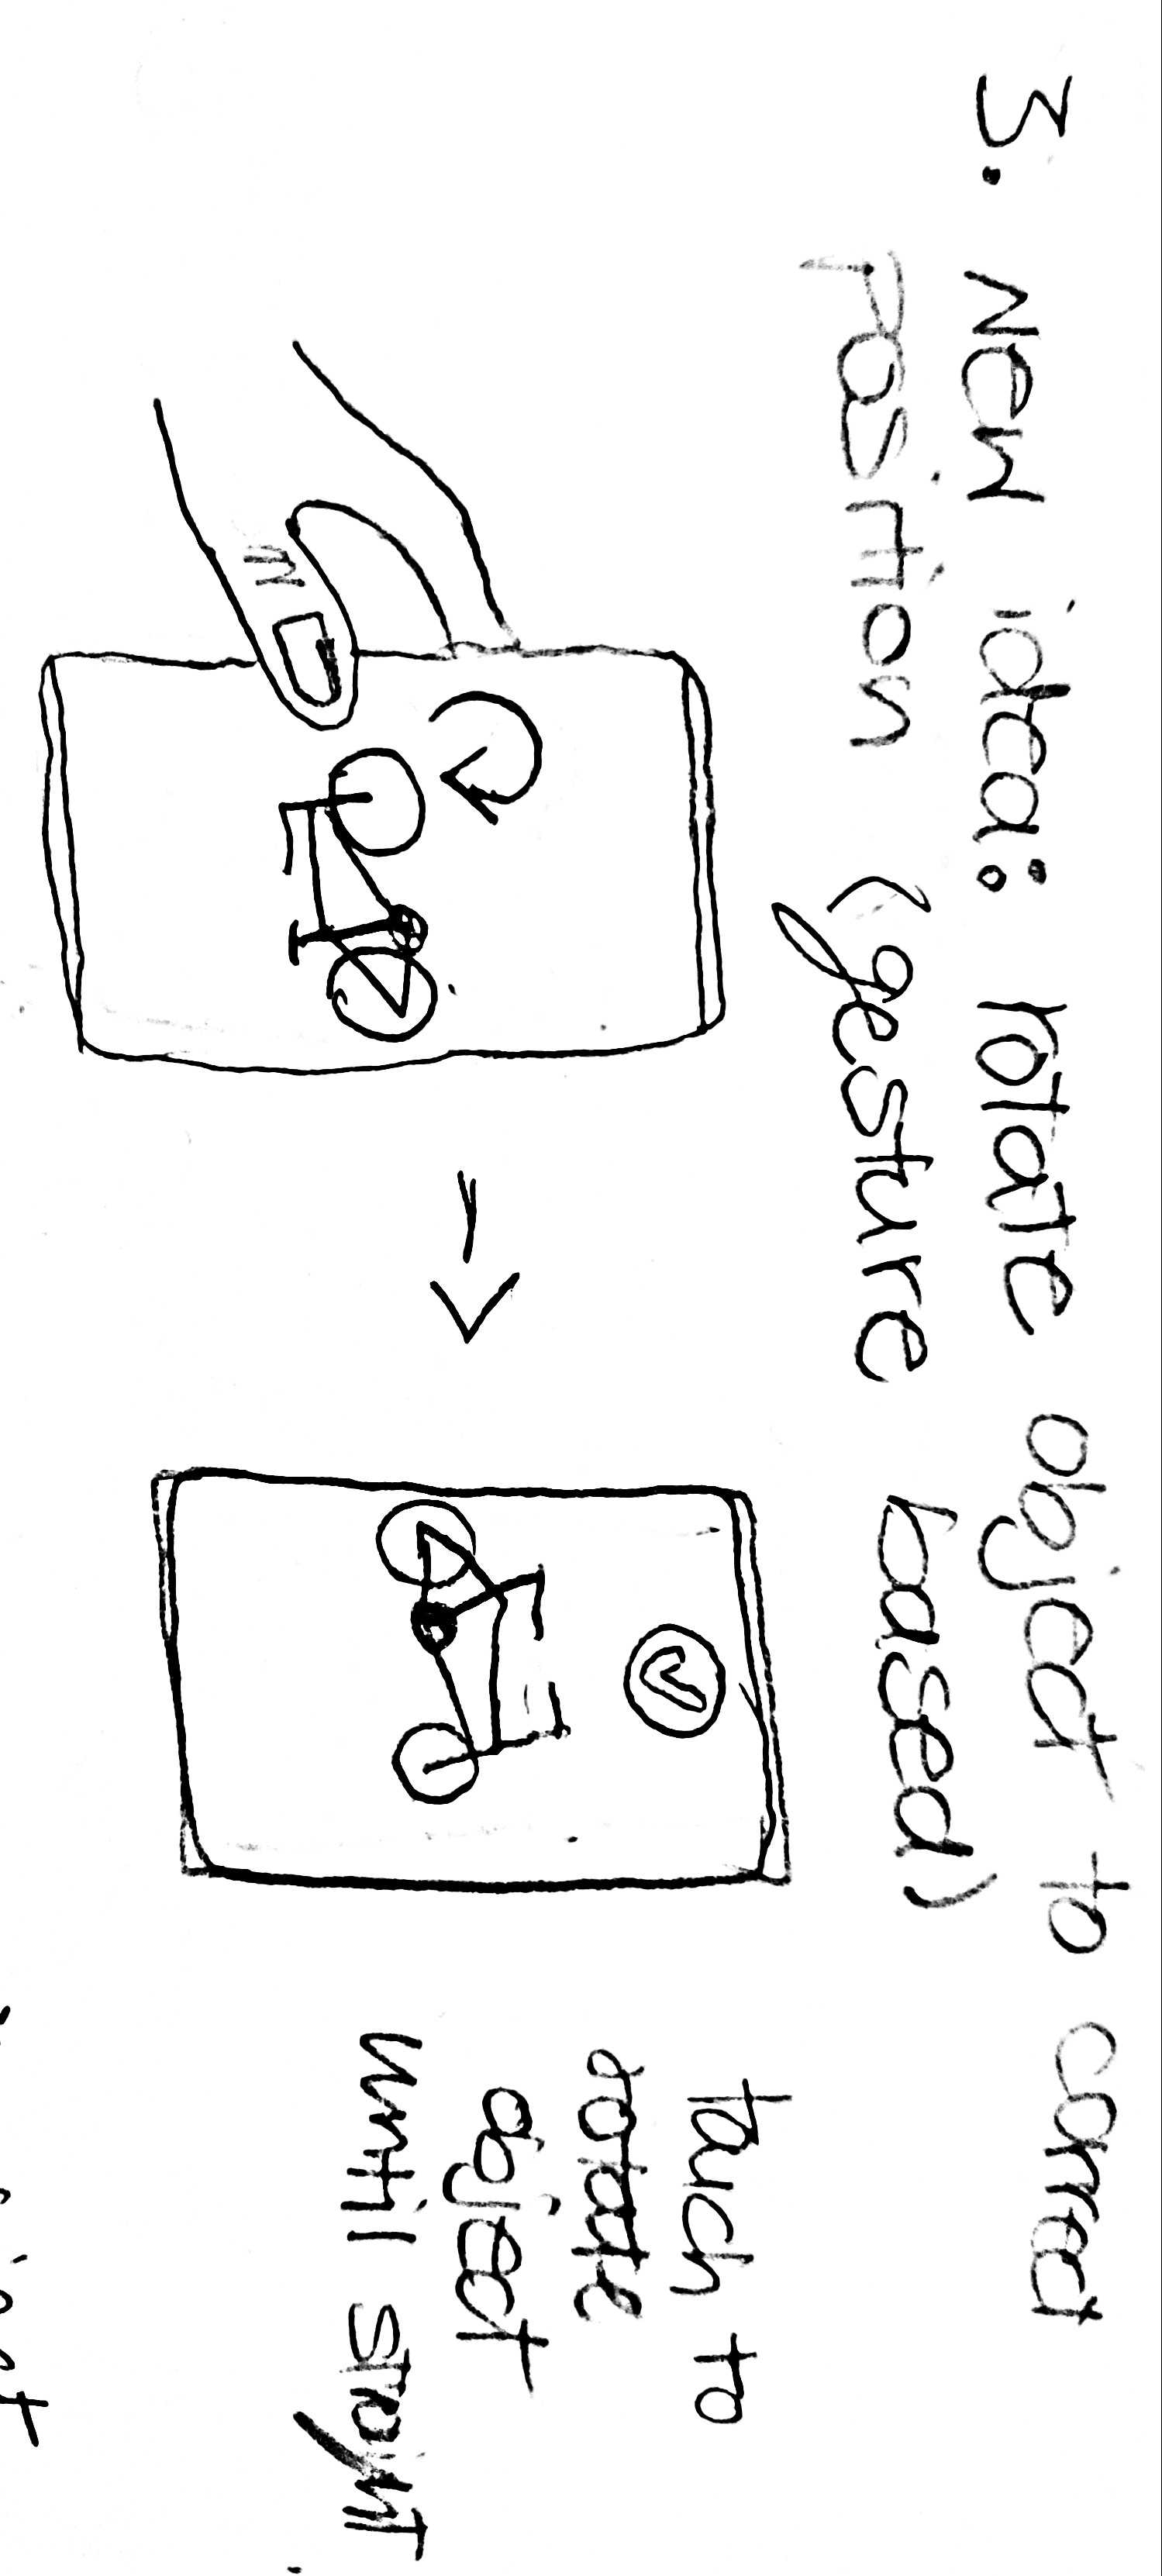 3. New idea: rotate object to correct
position (gesture based)
touch to
rotate
object
until straight.